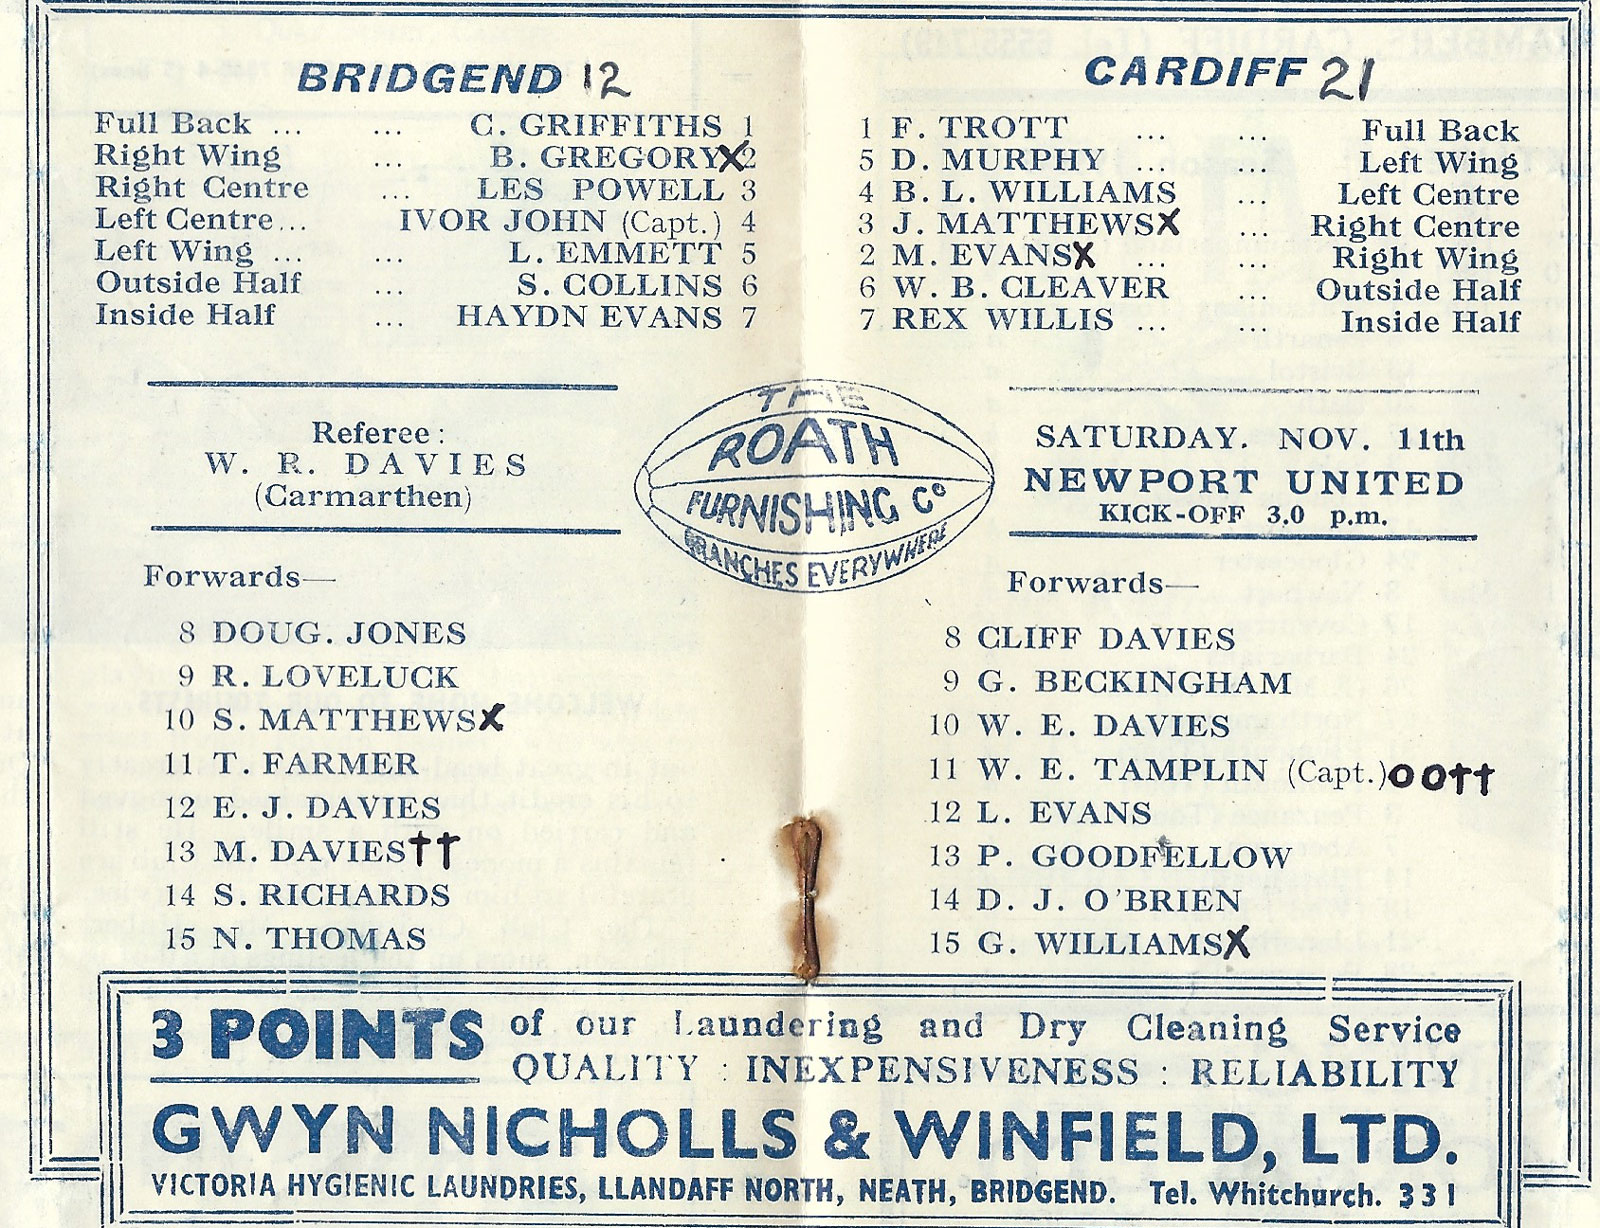 BRIDGEND 12
Full Back ... ... C. GRIFFITHS 1
Right Wing ... B. GREGORY X 2
Right Centre ... LES POWELL 3
Left Centre... IVOR JOHN (Capt.) 4
Left Wing ... ... L. EMMETT 5
Outside Half ... S. COLLINS 6
Inside Half ... HAYDN EVANS 7
Referee :
W. R. DAVIES
(Carmarthen)
Forwards—
8 DOUG. JONES
9 R. LOVELUCK
10 S. MATTHEWS X
11 T. FARMER
12 E. J. DAVIES
13 M. DAVIES ††
14 S. RICHARDS
15 N. THOMAS
THE
ROATH
FURNISHING Cº
BRANCHES EVERYWHERE
CARDIFF 21
1 F. TROTT ... ... Full Back
5 D. MURPHY ... ... Left Wing
4 B. L. WILLIAMS ... Left Centre
3 J. MATTHEWS X ... Right Centre
2 M. EVANS X ... ... Right Wing
6 W. B. CLEAVER ... Outside Half
7 REX WILLIS ... ... Inside Half
SATURDAY. NOV. 11th
NEWPORT UNITED
KICK-OFF 3.0 p.m.
Forwards—
8 CLIFF DAVIES
9 G. BECKINGHAM
10 W. E. DAVIES
11 W. E. TAMPLIN (Capt.) oo††
12 L. EVANS
13 P. GOODFELLOW
14 D. J. O'BRIEN
15 G. WILLIAMS X
3 POINTS of our Laundering and Dry Cleaning Service
QUALITY : INEXPENSIVENESS : RELIABILITY
GWYN NICHOLLS & WINFIELD, LTD.
VICTORIA HYGIENIC LAUNDRIES, LLANDAFF NORTH, NEATH, BRIDGEND. Tel. Whitchurch. 331